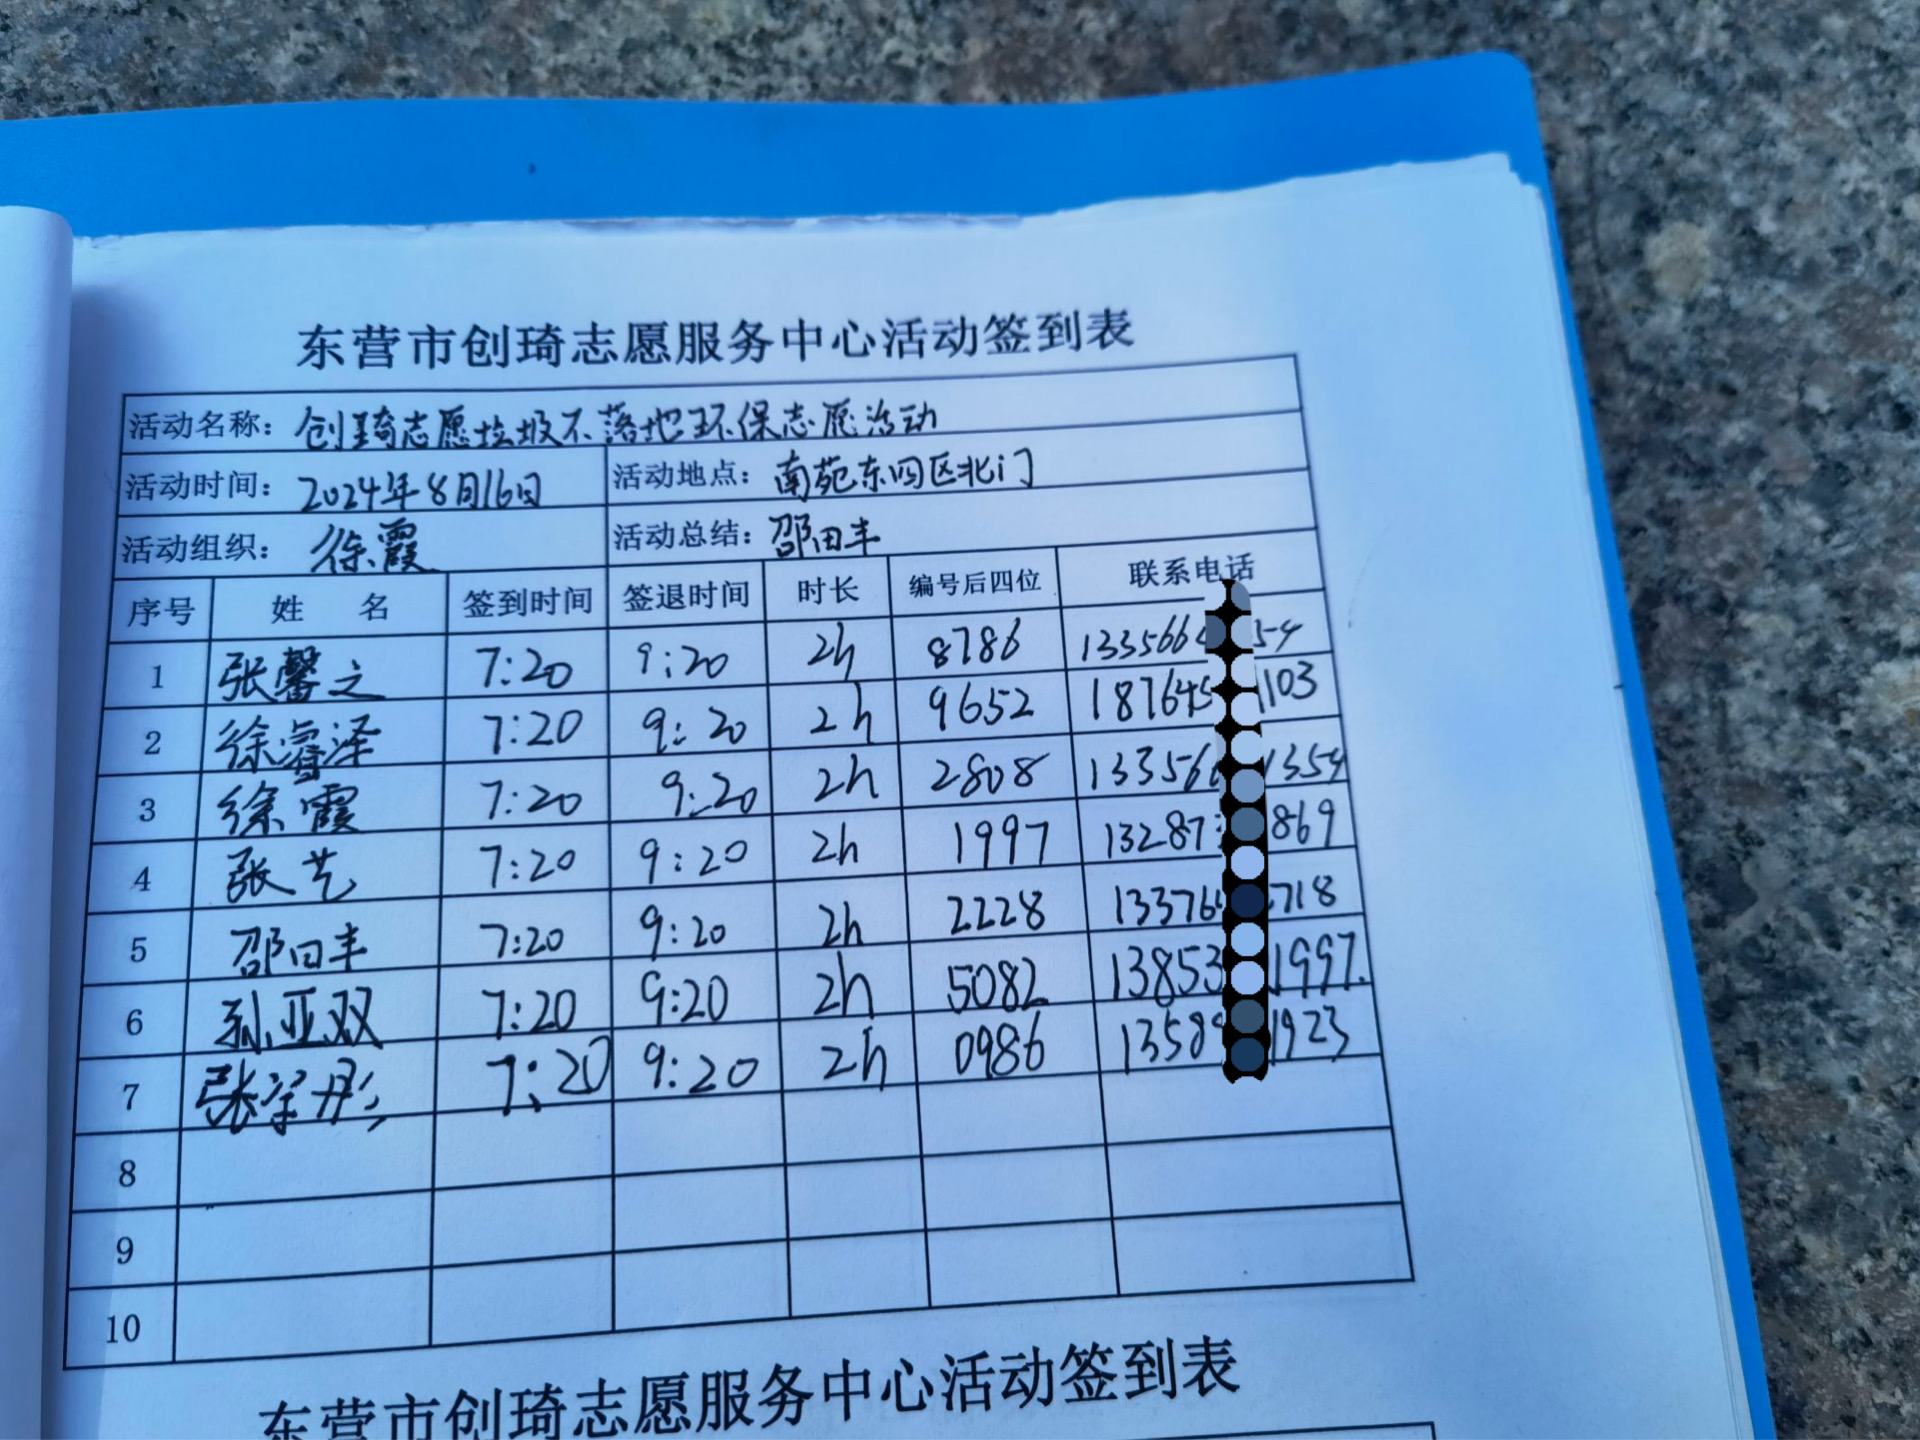 东营市创琦志愿服务中心活动签到表
活动名称: 创琦志愿垃圾不落地环保志愿活动
活动时间: 2024年8月16日 活动地点: 南苑东四区北门
活动组织: 徐霞 活动总结: 邵田丰
序号 姓 名 签到时间 签退时间 时长 编号后四位 联系电话
1 张馨之 7:20 9:20 2h 8786 1335664 54
2 徐睿泽 7:20 9:20 2h 9652 187645 1103
3 徐霞 7:20 9:20 2h 2808 133566 1354
4 张艺 7:20 9:20 2h 1997 13287 869
5 邵田丰 7:20 9:20 2h 2228 13376 718
6 孙亚双 7:20 9:20 2h 5082 13853 1997.
7 张宇彤 7:20 9:20 2h 0986 1358 1923
8
9
10
东营市创琦志愿服务中心活动签到表